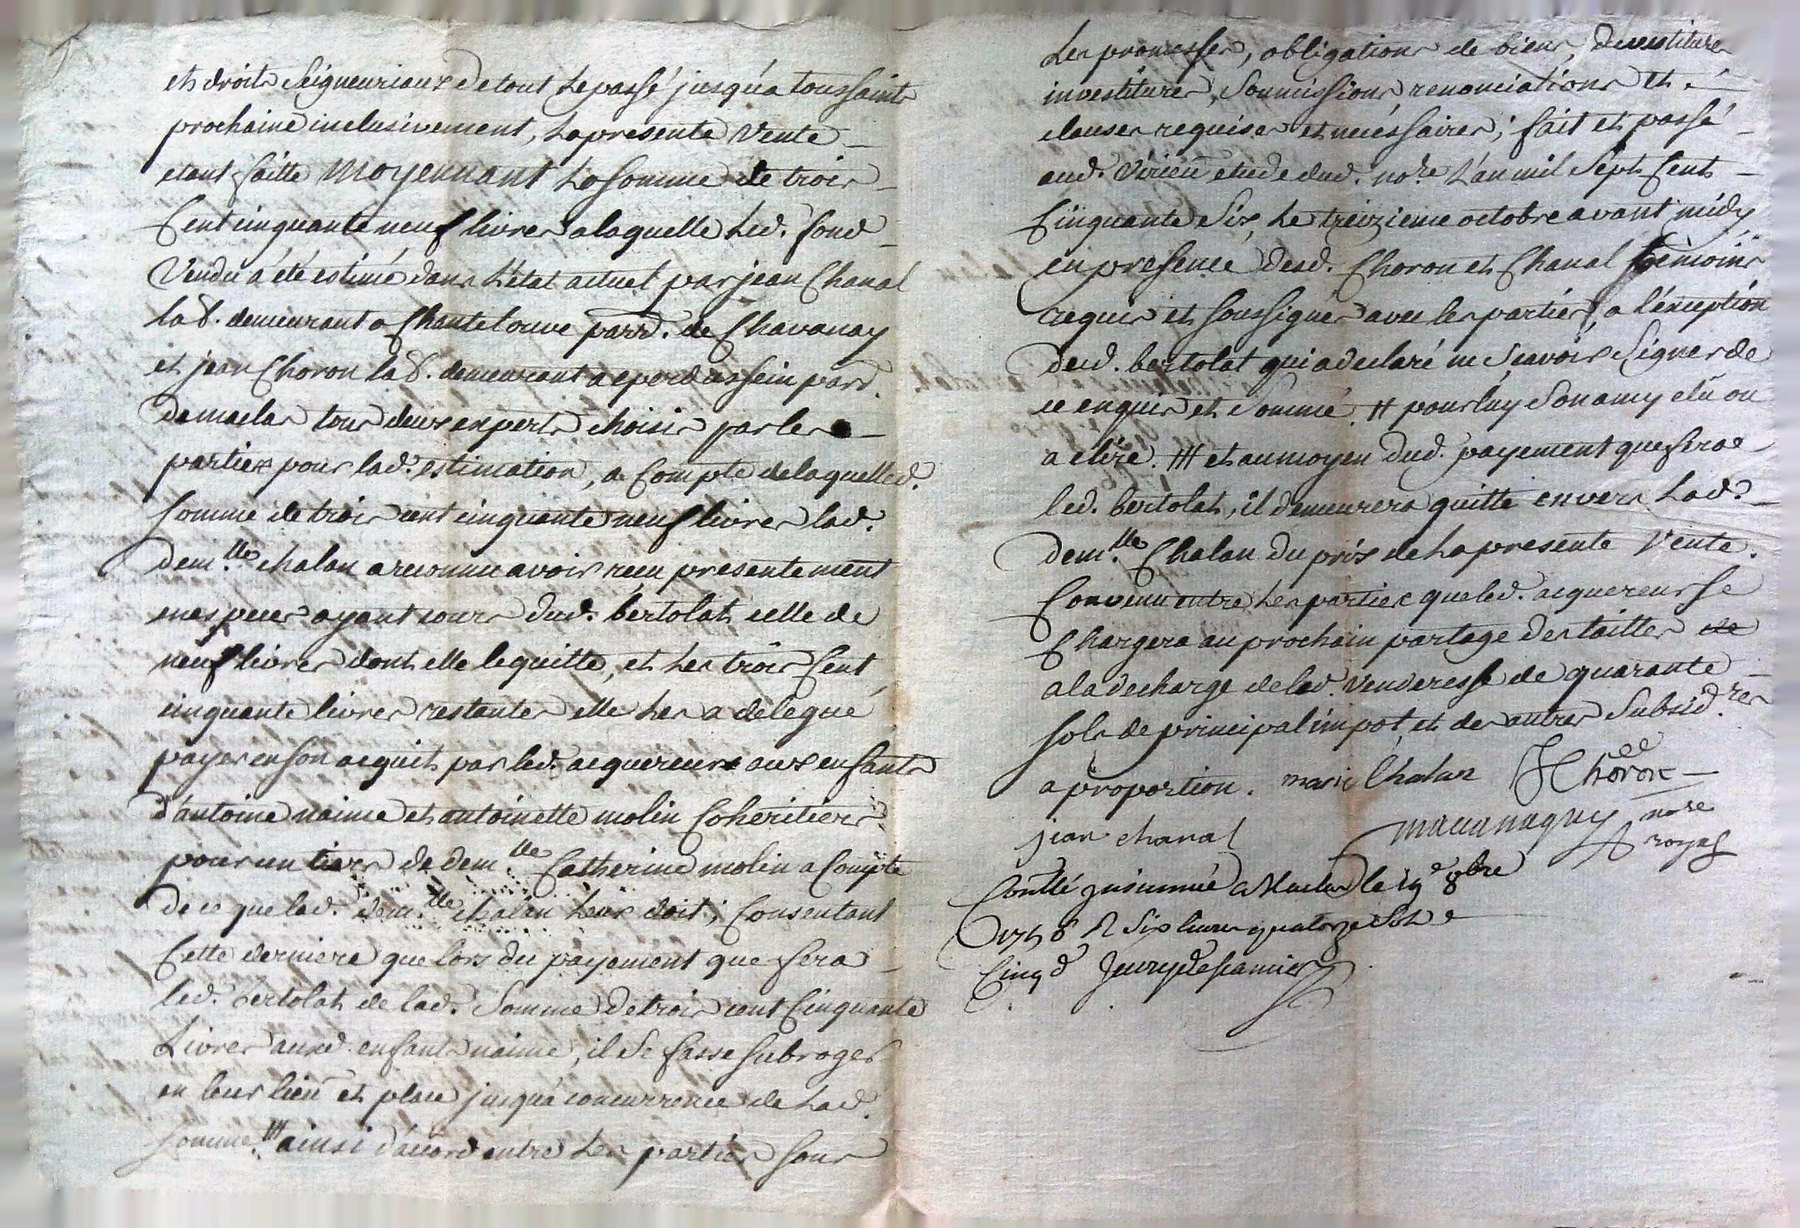 et droits Seigneuriaux de tout le passé jusqu'a toussaints
prochaine inclusivement, la presente vente
etant faitte moyennant la somme de trois
Cent cinquante neuf livres a laquelle led. fond
Vendu a été estimé dans l'état actuel par jean Chanal
lab. demeurant a Chantelouve parr. de Chavanay
et jean Choron lab. demeurant a eperdussein parr.
de maclas tous deux experts choisis par les
parties pour lad. estimation, a Compte de laquelled.
somme de trois cent cinquante neuf livres lad.
dem.lle chalan a reconnu avoir reçu presentement
en especes ayant cours dud. bertolat celle de
neuf livres dont elle le quitte, et les trois Cent
cinquante livres restantes elle les a delegué
payer en son acquit par led. acquereur aux enfants
d'antoine naime et antoinette molin Coheritiers
pour un tiers de dem.lle Catherine molin a Compte
de ce que lad. dem.lle chalan leur doit; Consentant
Cette derniere que lors du payement que fera
led. bertolat de lad. Somme de trois cent Cinquante
Livres auxd. enfants naime, il se fasse subroger
en leur lieu et place jusqu'a concurrence de lad.
somme. ₶ ainsi d'accord entre les parties sous
les promesses, obligations de biens, devestitures
investitures, Soumissions renonciations et
clauses requises et necéssaires; fait et passé
aud. Virieu etude dud. no.re L'an mil Sept Cent
Cinquante Six, le treizieme octobre avant midy
en presence desd. Choron et Chanal témoins
requis et soussignés avec les parties, a l'éxception
dud. bertolat qui a declaré ne Scavoir Signer de
ce enquis et sommé. # pour luy Son amy élu ou
a elire. ₶ et au moyen dud. payement que fera
led. bertolat, il demeurera quitte envers lad.
dem.lle Chalan du prix de la presente Vente.
Convenu entre les parties que led. acquereur se
Chargera au prochain partage des tailles de
a la decharge de lad. venderesse de quarante
sols de principal impot, et des autres Subsid.res
a proportion. marie Chalan J Choron
jean chanal no.re
royal
Conllé insinué a Maclas le 19e 8bre
1756 R Six livres quatorze Sols
Cinq d